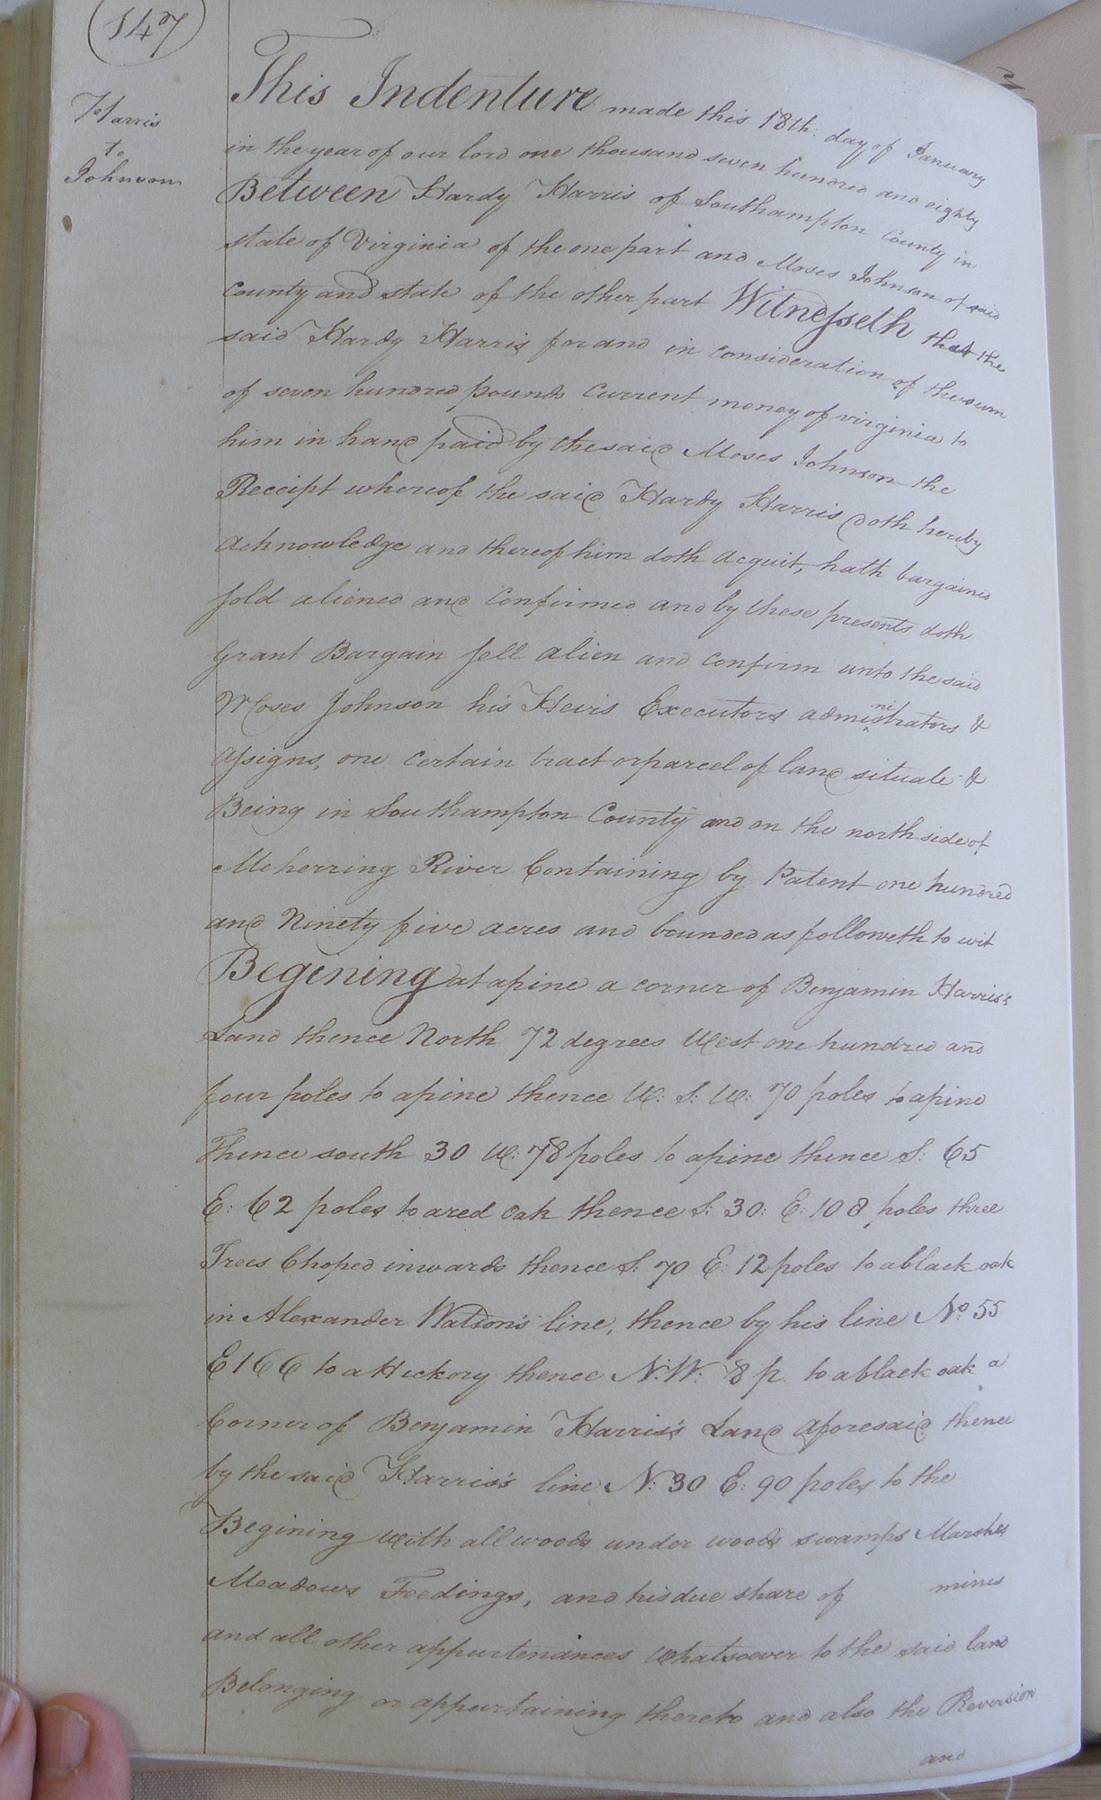 147
Harris
to
Johnson
This Indenture made this 18th: day of January
in the year of our lord one thousand seven hundred and eighty
Between Hardy Harris of Southampton County in
state of Virginia of the one part and Moses Johnson of said
County and state of the other part Witnesseth that the
said Hardy Harris for and in consideration of the sum
of seven hundred pounds Current money of virginia to
him in hand paid by the said Moses Johnson the
Receipt whereof the said Hardy Harris doth hereby
acknowledge and thereof him doth acquit, hath bargained
sold aliened and confirmed and by these presents doth
Grant Bargain sell alien and confirm unto the said
Moses Johnson his Heirs Executors administrators &
assigns, one certain tract or parcel of land situate &
Being in Southampton County and on the north side of
Meherring River Containing by Patent one hundred
and Ninety five acres and bounded as followeth to wit
Begining at a pine a corner of Benjamin Harris's
Land thence North 72 degrees West one hundred and
four poles to a pine thence W: S: W: 70 poles to a pine
Thence south 30 W: 78 poles to a pine thence S: 65
E: 62 poles to a red oak thence S: 30: E: 108 poles three
Trees Choped inwards thence S: 70 E: 12 poles to a black oak
in Alexander Watson's line, thence by his line No 55
E 166 to a Hickory thence N: W: 8 p. to a black oak a
Corner of Benjamin Harris's Land aforesaid thence
by the said Harris's line N: 30 E: 90 poles to the
Begining with all woods under woods swamps Marshes
Meadows Feedings, and his due share of mines
and all other appurtenances whatsoever to the said land
Belonging or appurtaining thereto and also the Reversion
and